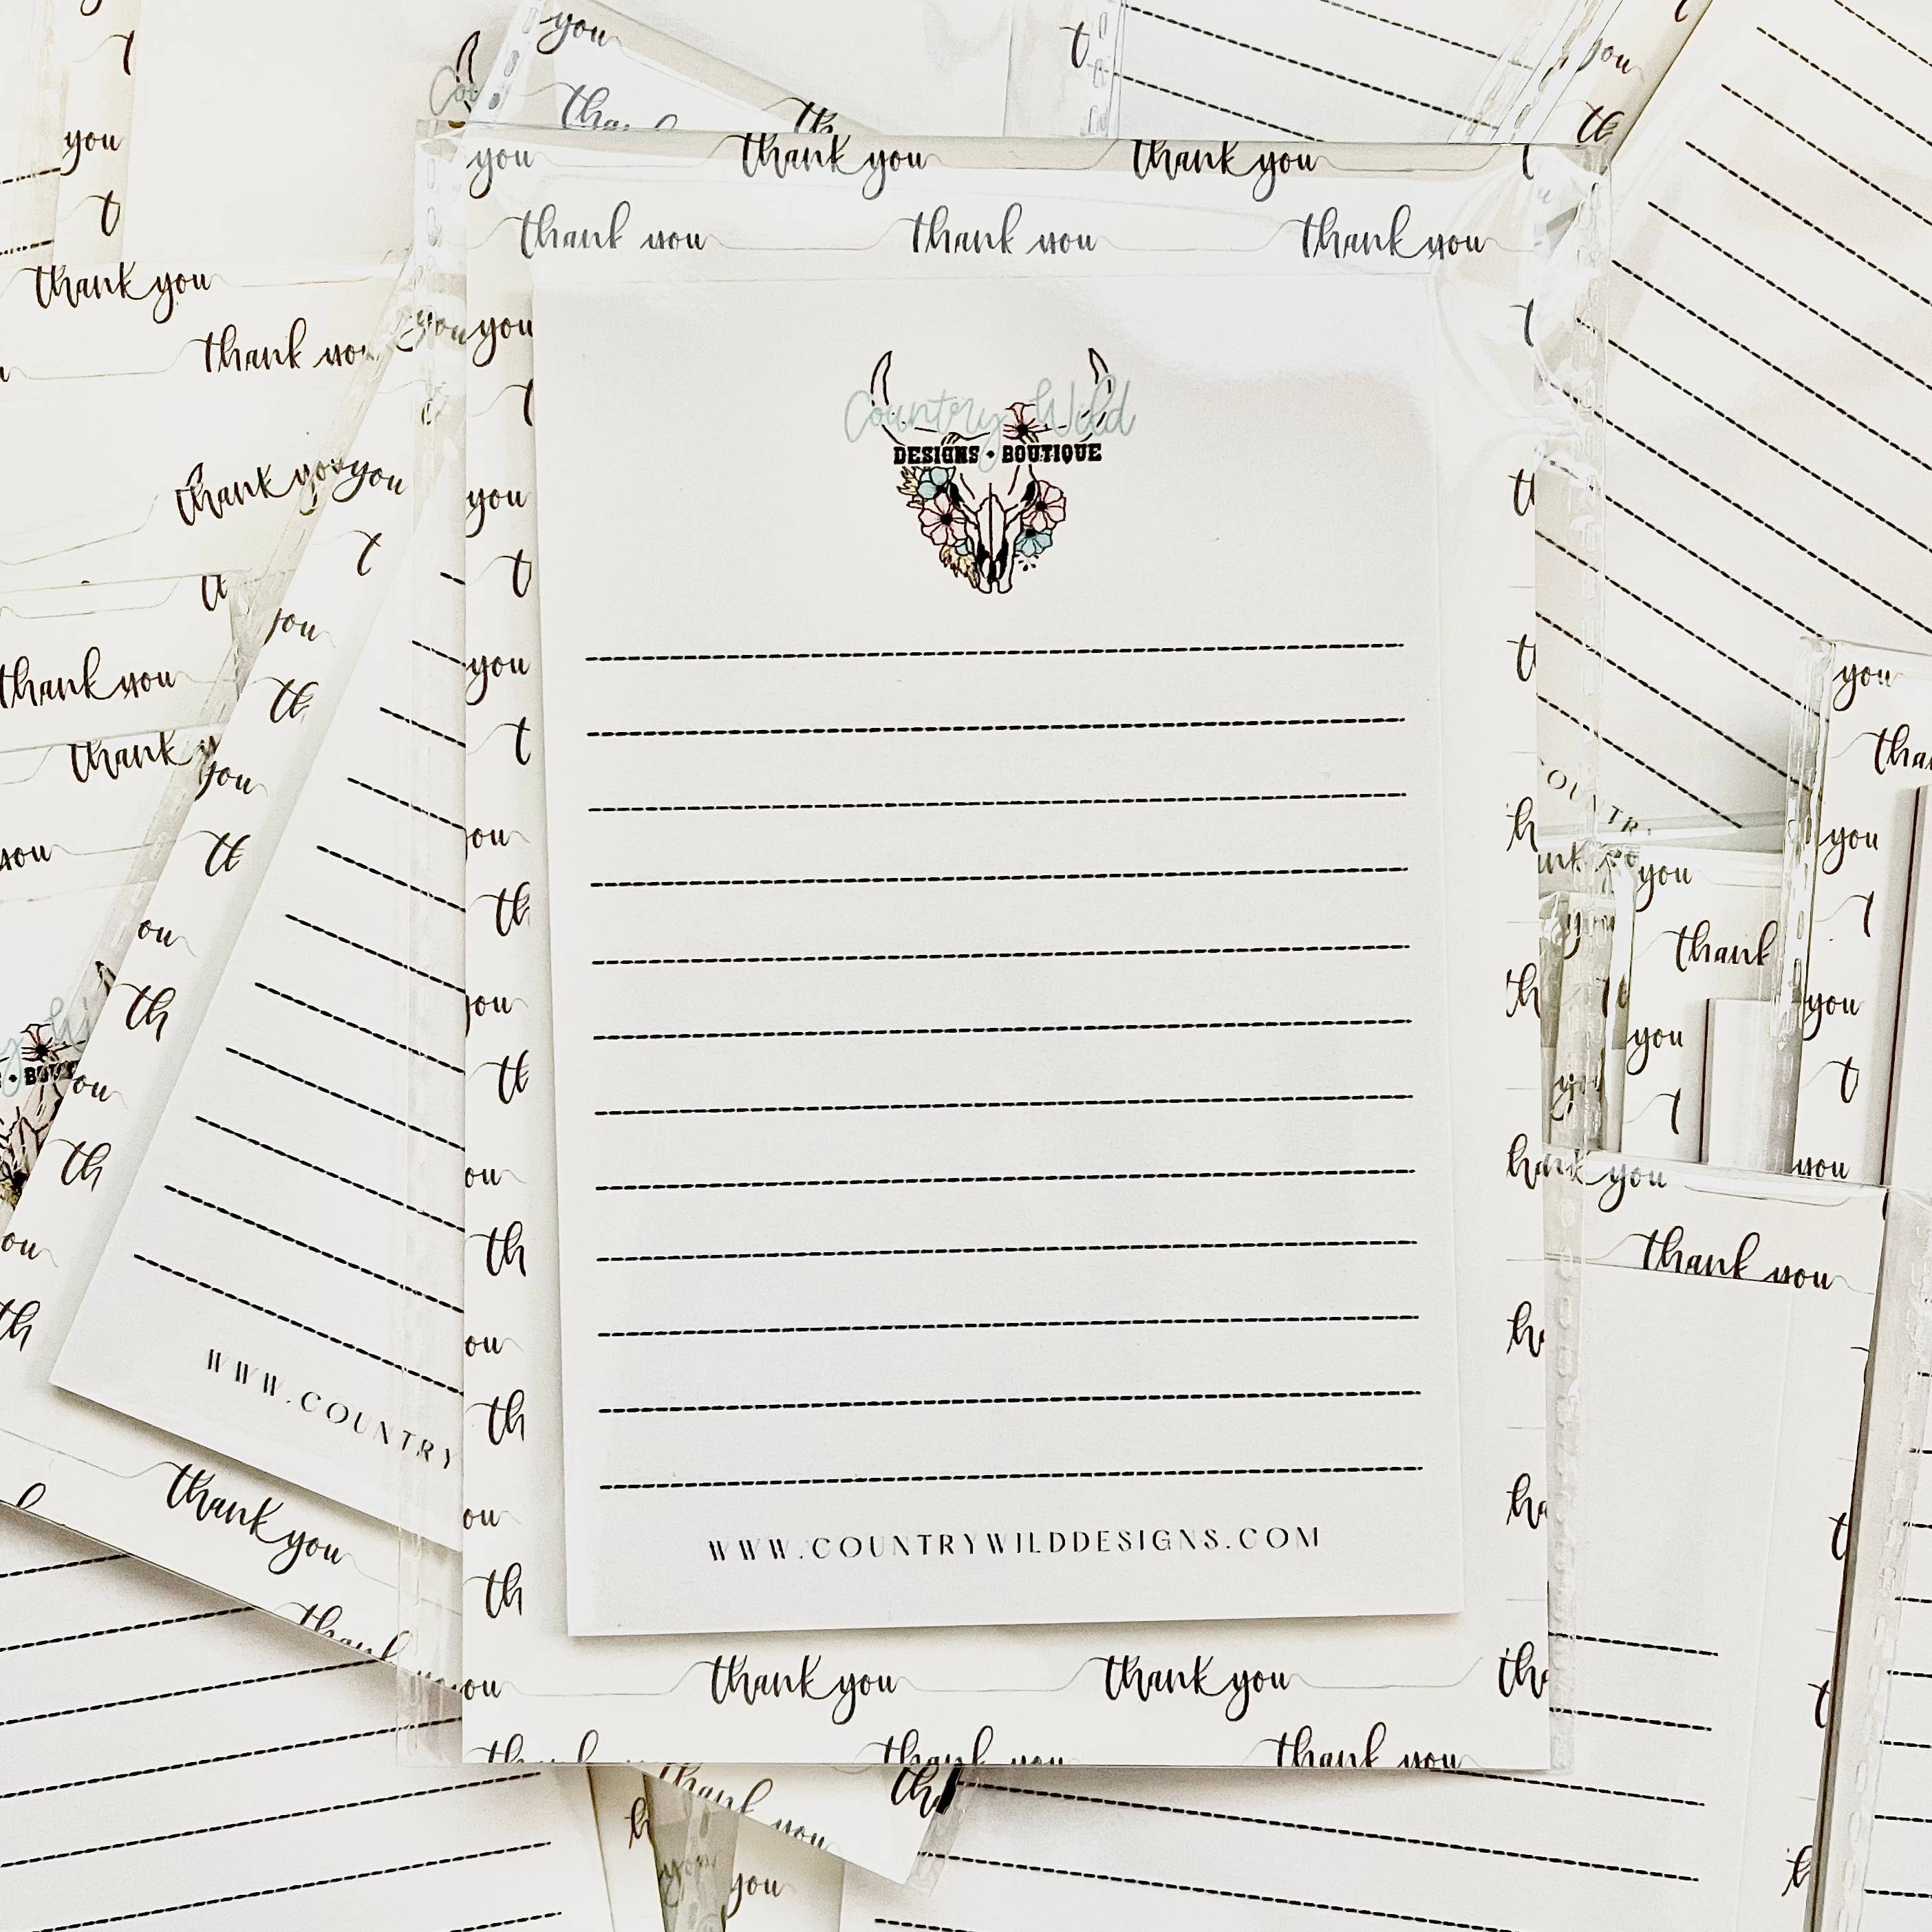 you thank you thank you
thank you thank you thank you
Country Wild
DESIGNS • BOUTIQUE
WWW.COUNTRYWILDDESIGNS.COM
thank you thank you
thank you thank you
thank you
thank you
thank you
thank you
WWW.COUNTRY
thank you
thank
you
thank you
thank
you
thank you